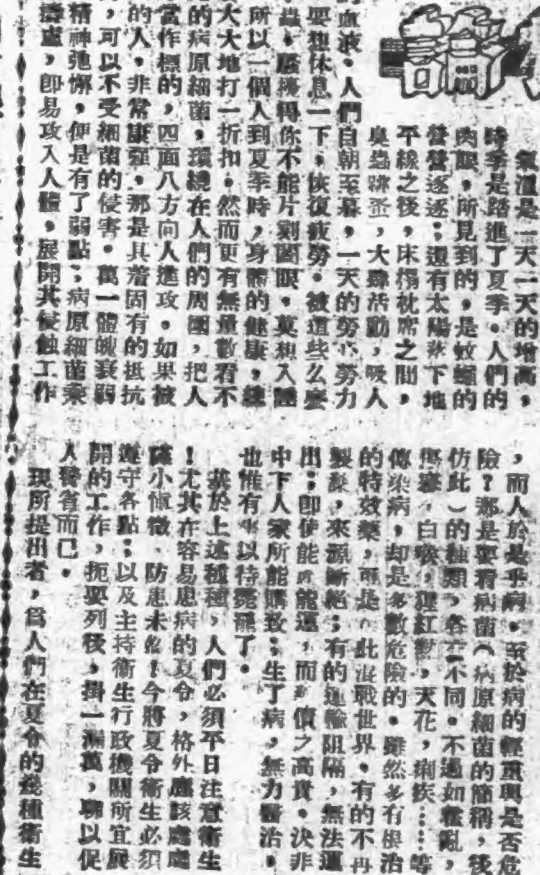 氣溫是一天一天的增高，
時季是踏進了夏季。人們的
肉眼，所見到的，是蚊蠅的
營營逐逐；還有太陽落下地
平線之後，床榻枕席之間，
臭蟲跳蚤，大肆活動，吸人
血液。人們自朝至暮，一天的勞心勞力
要想休息一下，恢復疲勞。被這些么麼
蟲，擾得你不能片刻闔眼，莫想入睡
所以一個人到夏季時，身體的健康，
大大地打一折扣。然而更有無量數看不
的病原細菌，環繞在人們的周圍，把人
當作標的，四面八方向人進攻。如果被
的人，非常康強，那是具着固有的抵抗
，可以不受細菌的侵害。萬一體魄衰弱
精神弛懈，便是有了弱點；病原細菌乘
虛，即易攻入人體，展開其侵蝕工作
，而人於是乎病。至於病的輕重與是否危
險？那是要看病菌（病原細菌的簡稱，後
仿此）的種類，各各不同。不過如霍亂，
傷寒，白喉，猩紅熱，天花，痢疾……等
傳染病，却是多數危險的。雖然多有根治
的特效藥，可是在此混戰世界。有的不再
製藥，來源斷絕；有的運輸阻隔，無法運
出；即使能能運，而價之高貴。決非
中下人家所能購致；生了病，無力醫治。
也惟有坐以待斃罷了。
基於上述種種，人們必須平日注意衞生
！尤其在容易患病的夏令，格外應該處處
小慎微，防患未然！今將夏令衞生必須
遵守各點；以及主持衞生行政機關所宜展
開的工作，扼要列後，掛一漏萬，聊以促
人警省而已。
現所提出者，爲人們在夏令的幾種衞生